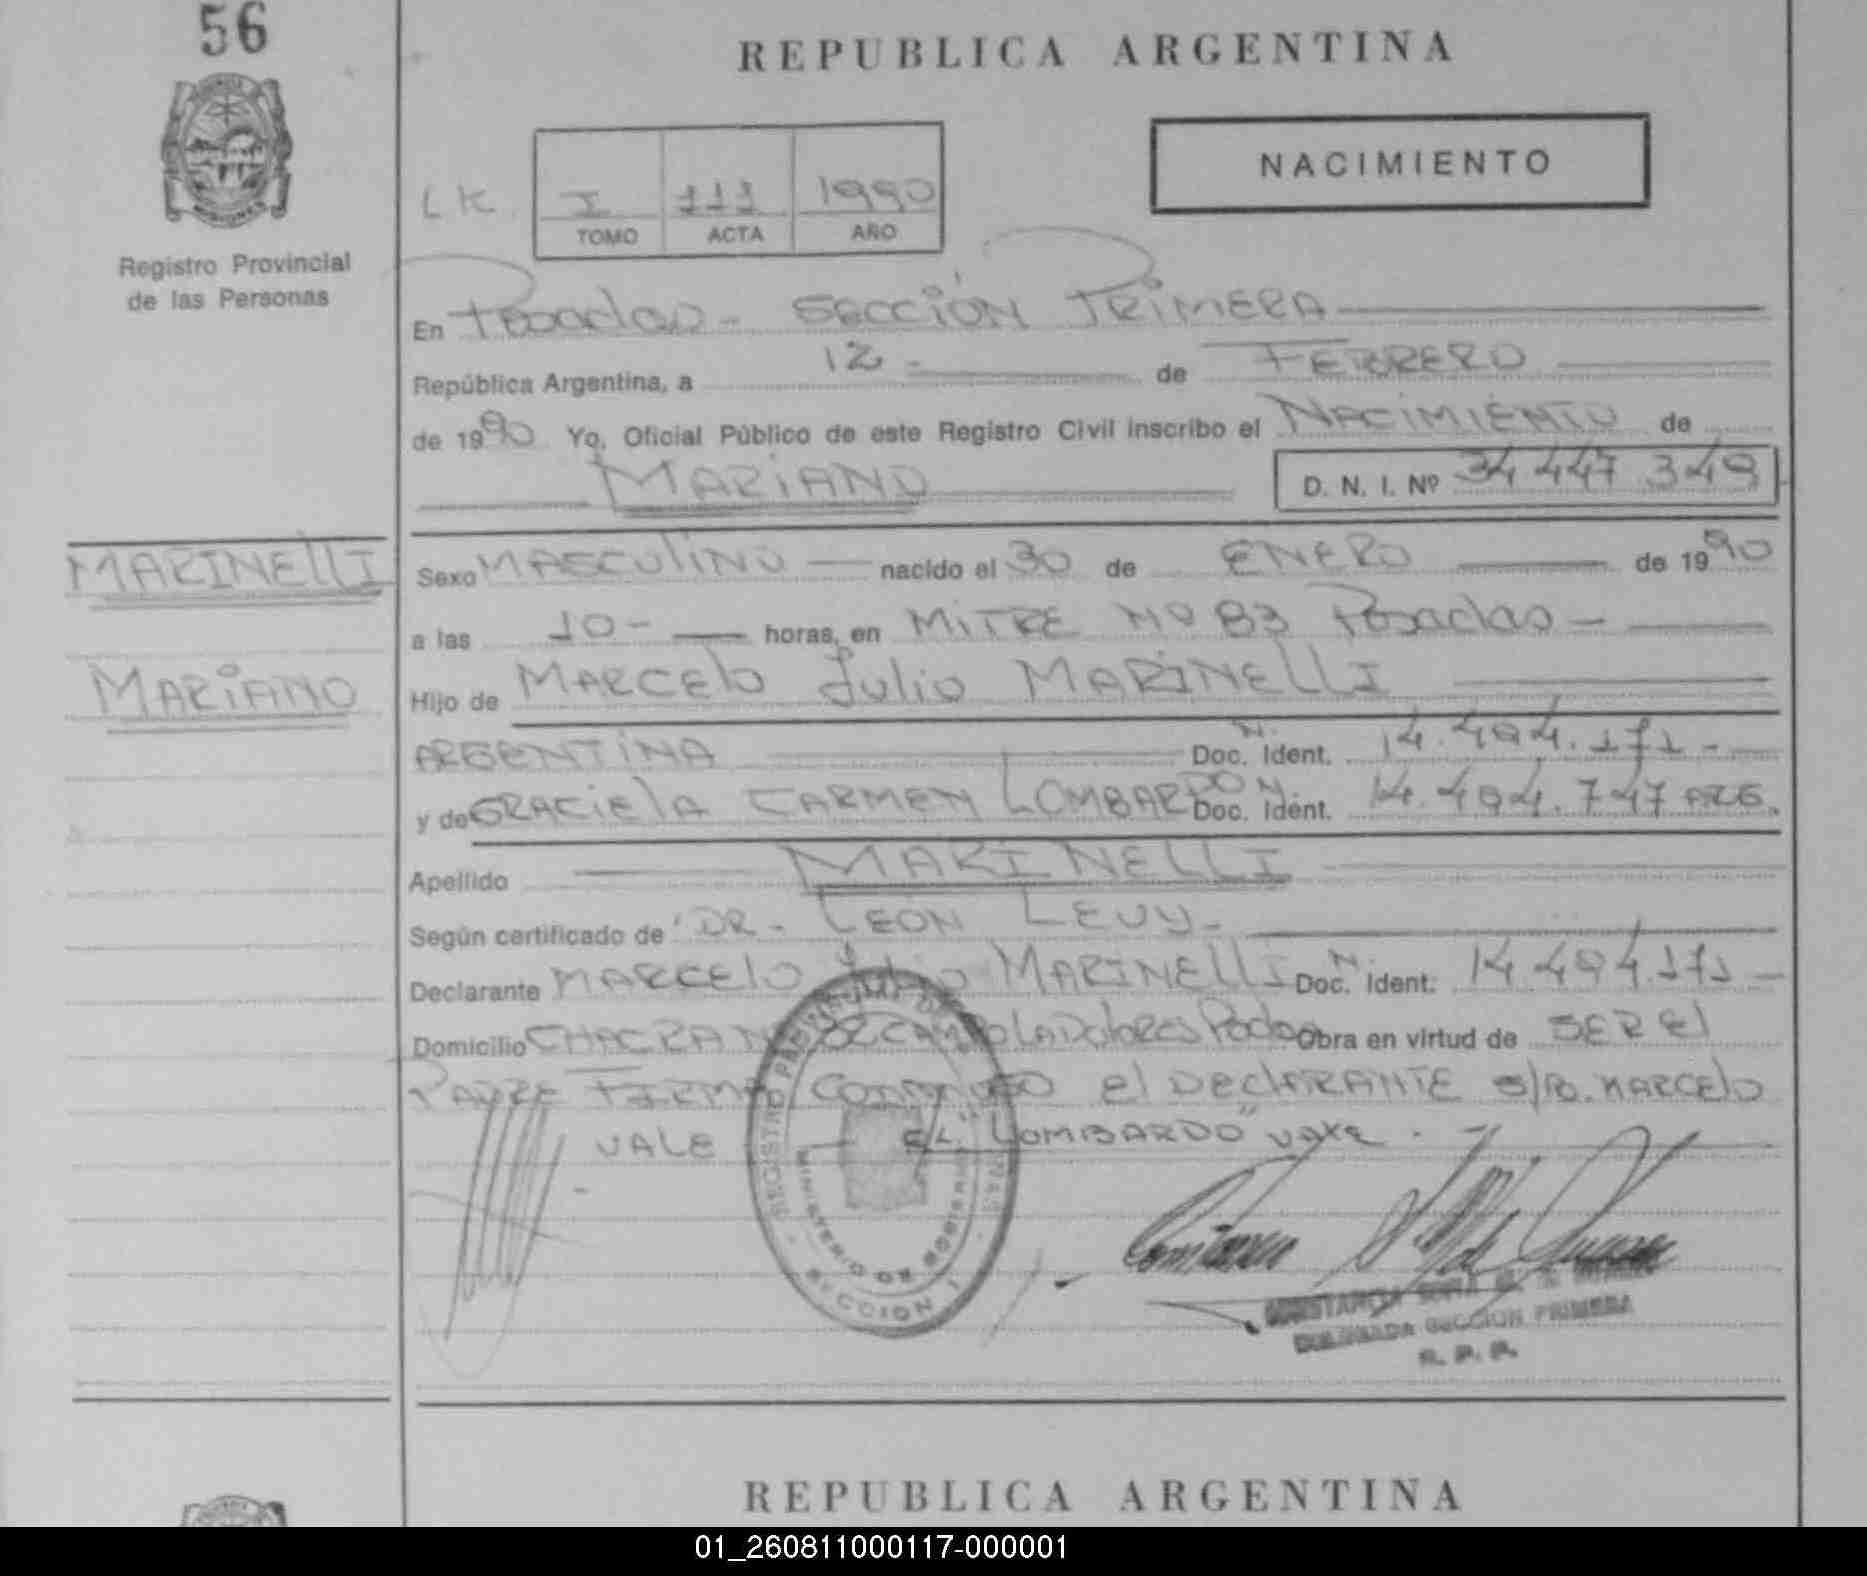 56
REPUBLICA ARGENTINA
NACIMIENTO
LK I 111 1990
TOMO ACTA AÑO
Registro Provincial
de las Personas
En Posadas - SECCIÓN PRIMERA
República Argentina, a 12 - de FEBRERO
de 1990 Yo, Oficial Público de este Registro Civil inscribo el NACIMIENTO de
MARIANO D. N. I. Nº 34 447 349
MARINELLI
Sexo MASCULINO nacido el 30 de ENERO de 1990
a las 10 - horas, en MITRE Nº 83 Posadas -
MARIANO
Hijo de MARCELO Julio MARINELLI
ARGENTINA Doc. N. Ident. 14.494.171 -
y de GRACIELA CARMEN LOMBARDO Doc. N. Ident. 14.494.747 ARG.
Apellido MARINELLI
Según certificado de DR. LEÓN LEVY -
Declarante MARCELO Julio MARINELLI Doc. N. Ident. 14.494.171 -
Domicilio CHACRA Obra en virtud de SER El
PADRE FIRMA el DECLARANTE s/b. MARCELO
VALE EL "LOMBARDO" VALE. -
REGISTRO
MINISTERIO DE GOBIERNO
SECCION 1
SECCION PRIMERA
R. P. P.
REPUBLICA ARGENTINA
01_260811000117-000001